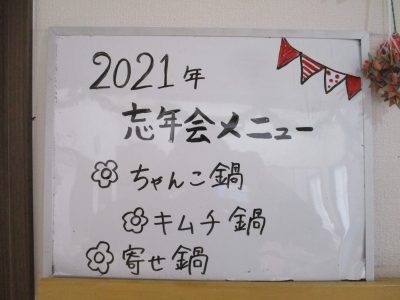 2021年
忘年会メニュー
ちゃんこ鍋
キムチ鍋
寄せ鍋